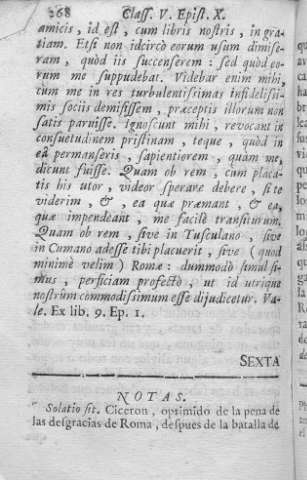 268 Class. V. Epist. X.
amicis, id est, cum libris nostris, in gra-
tiam. Etsi non idcircò eorum usum dimise-
ram, quòd iis succenserem: sed quòd eo-
rum me suppudebat. Videbar enim mihi,
cùm me in res turbulentissimas infidelissi-
mis sociis demisissem, præceptis illorum non
satis paruisse. Ignoscunt mihi, revocant in
consuetudinem pristinam, teque, quòd in
eâ permanseris, sapientiorem, quàm me,
dicunt fuisse. Quam ob rem, cum placa-
tis his utor, videor sperare debere, si te
viderim, &, ea quæ præmant, & ea,
quæ impendeant, me facilè transiturum.
Quam ob rem, sive in Tusculano, sive
in Cumano adesse tibi placuerit, sive (quod
minimè velim) Romæ: dummodò simul si-
mus, perficiam profectò, ut id utrique
nostrûm commodissimum esse dijudicetur. Va-
le. Ex lib. 9. Ep. 1.
SEXTA
NOTAS.
Solatio sit. Ciceron, oprimido de la pena de
las desgracias de Roma, despues de la batalla de